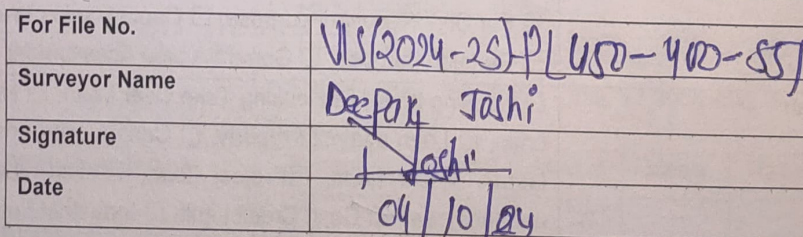 For File No. VIS(2024-25)-PL450-400-551
Surveyor Name Deepak Joshi
Signature Joshi
Date 04/10/24